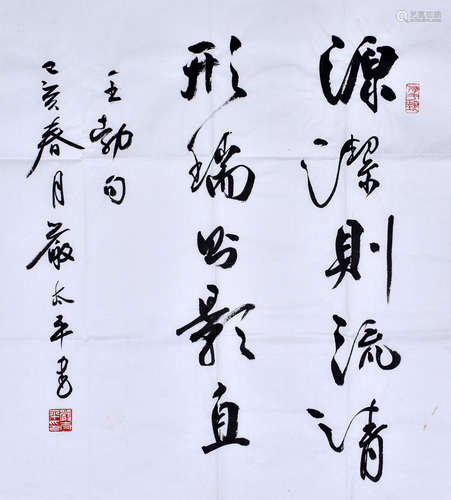 源潔則流清
形端则影直
王勃句
己亥春月嚴太平书